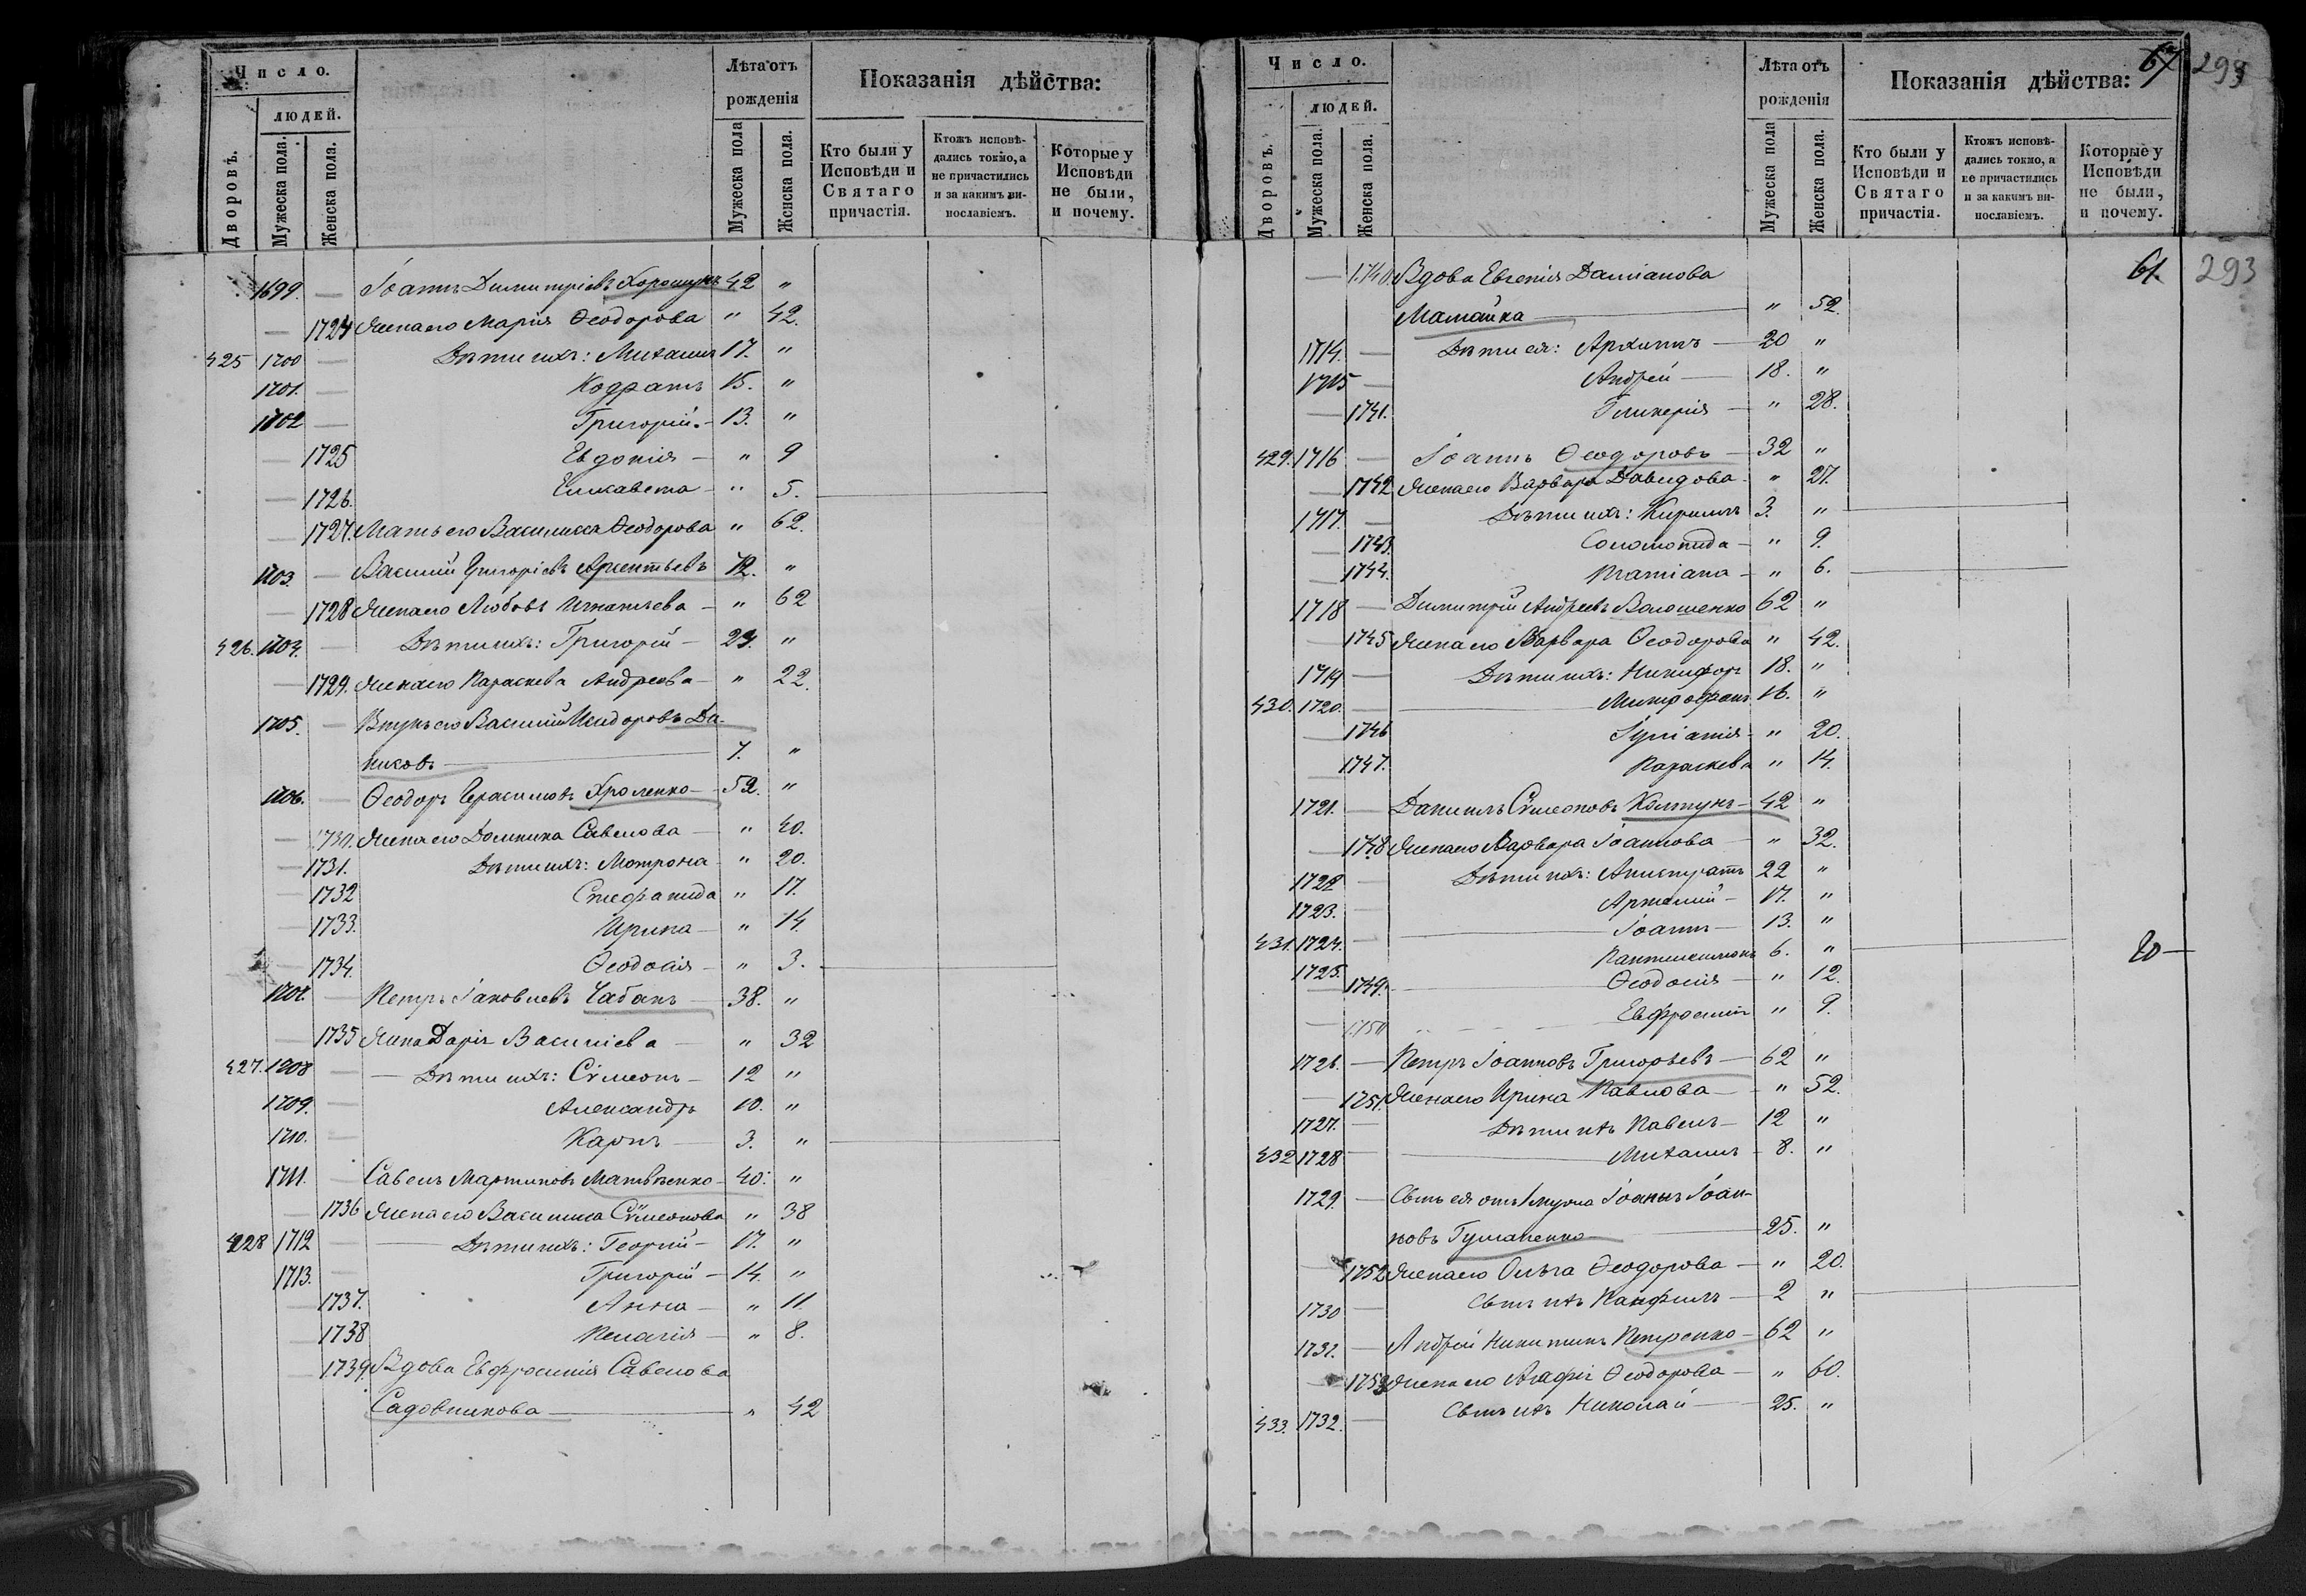 Число.
людей.
Дворовъ.
Мужеска пола.
Женска пола.
Лѣта отъ
рожденія
Мужеска пола
Женска пола.
Показанія дѣйства:
Кто были у
Исповѣди и
Святаго
причастія.
Ктожъ исповѣ-
дались токмо, а
не причастились
и за какимъ ви-
нословіемъ.
Которые у
Исповѣди
не были,
и почему.
1699. — Іоаннъ Димитріевъ Хорошунъ 42 "
— 1724 Жена его Марія Ѳеодорова " 42.
425 1700 — Дѣти ихъ: Михаилъ 17. "
1701. — Кодратъ 15. "
1702 — Григорій. — 13. "
— 1725 Евдокія — " 9
— 1726. Елисавета — " 5.
1727. Мать его Василисса Ѳеодорова " 62.
1703. — Василій Григоріевъ Арсентьевъ 72. "
— 1728 Жена его Любовь Игнатьева — " 62
426. 1704. — Дѣти ихъ: Григорій — 24. "
— 1729. Жена его Параскева Андреева — " 22.
1705. — Внукъ его Василій Исидоровъ Да-
никовъ — 7. "
1706. — Ѳеодоръ Герасимовъ Хроленко — 52. "
— 1730. Жена его Домника Савелова — " 40.
— 1731. Дѣти ихъ: Мотрона — " 20.
— 1732 Стефанида " 17.
— 1733. Ирина — " 14.
— 1734. Ѳеодосія — " 3.
1707. — Петръ Іаковлевъ Чабанъ — 38. "
— 1735 Жена Дарія Василіева — " 32
427. 1708 — Дѣти ихъ: Сѵмеонъ — 12 "
1709. — Александръ 10. "
1710. — Карпъ — 3. "
1711. — Савелъ Мартиновъ Матвѣенко — 40. "
— 1736 Жена его Василиса Сѵмеонова " 38
428 1712 — Дѣти ихъ: Георгій — 17. "
1713. — Григорій — 14. "
— 1737. Анна — " 11.
— 1738 Пелагія — " 8.
— 1739. Вдова Евфросинія Савелова
Садовникова — " 42
Число.
людей.
Дворовъ.
Мужеска пола.
Женска пола.
Лѣта отъ
рожденія
Мужеска пола
Женска пола.
Показанія дѣйства:
67
293
Кто были у
Исповѣди и
Святаго
причастія.
Ктожъ исповѣ-
дались токмо, а
не причастились
и за какимъ ви-
нословіемъ.
Которые у
Исповѣди
не были,
и почему.
61. 293
— 1740. Вдова Евгенія Даміанова
Мамайка — " 52.
1714. — Дѣти ея: Архипъ — 20 "
1715 — Андрей — 18. "
— 1741. Гликерія — " 28.
429. 1716 — Іоаннъ Ѳеодоровъ — 32 "
— 1742 Жена его Варвара Давидова — " 27.
1717. — Дѣти ихъ: Кириллъ 3. "
— 1743. Соломонида — " 9.
— 1744. Татіана — " 6.
1718 — Димитрій Андреевъ Волошенко 62 "
— 1745 Жена его Варвара Ѳеодорова " 42.
1719 — Дѣти ихъ: Никифоръ 18. "
430. 1720. — Митрофанъ 16. "
— 1746 Іуліанія — " 20.
— 1747. Параскева " 14.
1721. — Даниилъ Сѵмеоновъ Колтунъ — 42 "
— 1748 Жена его Варвара Іоаннова — " 32.
1722 — Дѣти ихъ: Анистратъ 22 "
1723. — Артемій — 17. "
431. 1724. — Іоаннъ — 13. "
1725. Пантелеимонъ 6. " 20 —
— 1749. Ѳеодосія — " 12.
— 1750 Евфросинія " 9.
1726. — Петръ Іоанновъ Григорьевъ — 62 "
— 1751. Жена его Ирина Павлова — " 52.
1727. — Дѣти ихъ Павелъ — 12 "
432 1728 — Михаилъ — 8. "
1729. — Сынъ ея отъ 1 мужа Іоаннъ Іоан-
новъ Гуманенко — 25. "
— 1752 Жена его Ольга Ѳеодорова — " 20.
1730 — Сынъ ихъ Панфилъ — 2 "
1731. — Андрей Никитинъ Петренко — 62 "
— 1753 Жена его Агафія Ѳеодорова — " 60.
433. 1732. — Сынъ ихъ Николай — 25. "